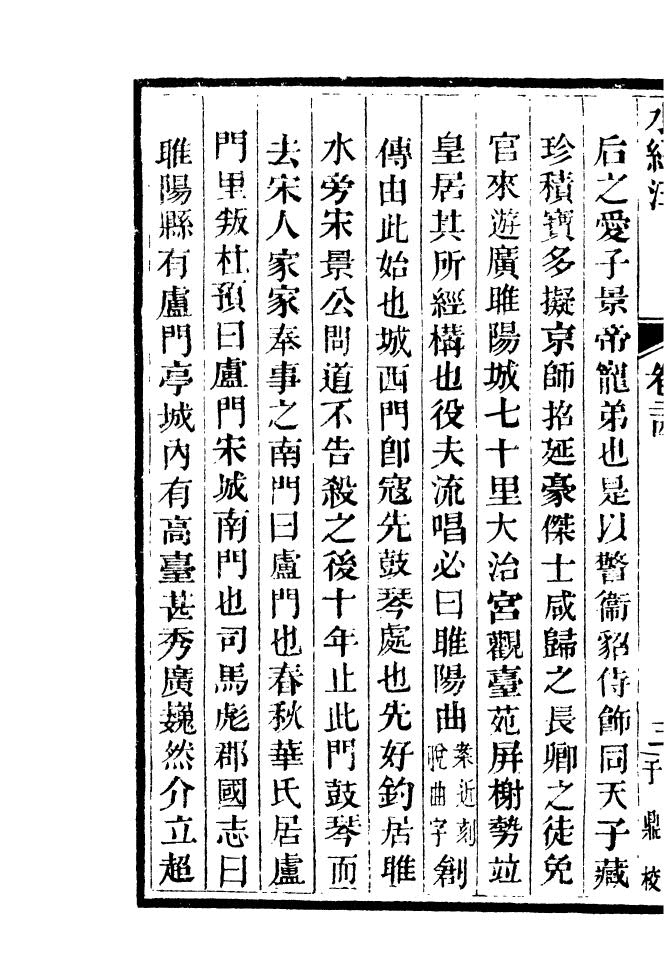 水經注 卷二十四 三 于鼎校
后之愛子景帝寵弟也是以警衞貂侍飾同天子藏
珍積寶多擬京師招延豪傑士咸歸之長卿之徒免
官來遊廣睢陽城七十里大治宮觀臺苑屏榭勢竝
皇居其所經構也役夫流唱必曰睢陽曲案近刻脫曲字創
傳由此始也城西門卽寇先鼓琴處也先好釣居睢
水旁宋景公問道不告殺之後十年止此門鼓琴而
去宋人家家奉事之南門曰盧門也春秋華氏居盧
門里叛杜預曰盧門宋城南門也司馬彪郡國志曰
睢陽縣有盧門亭城內有高臺甚秀廣巍然介立超